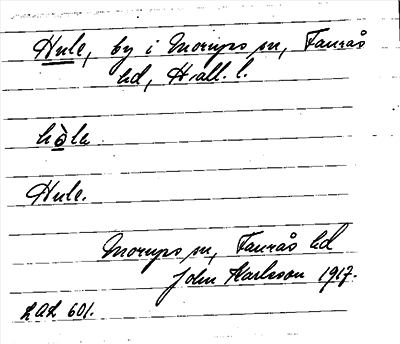 Hule, by i Morups sn, Faurås
hd, Hall. l.
hòla
Hule.
Morups sn, Faurås hd
John Karlsson 1917.
LAL 601.